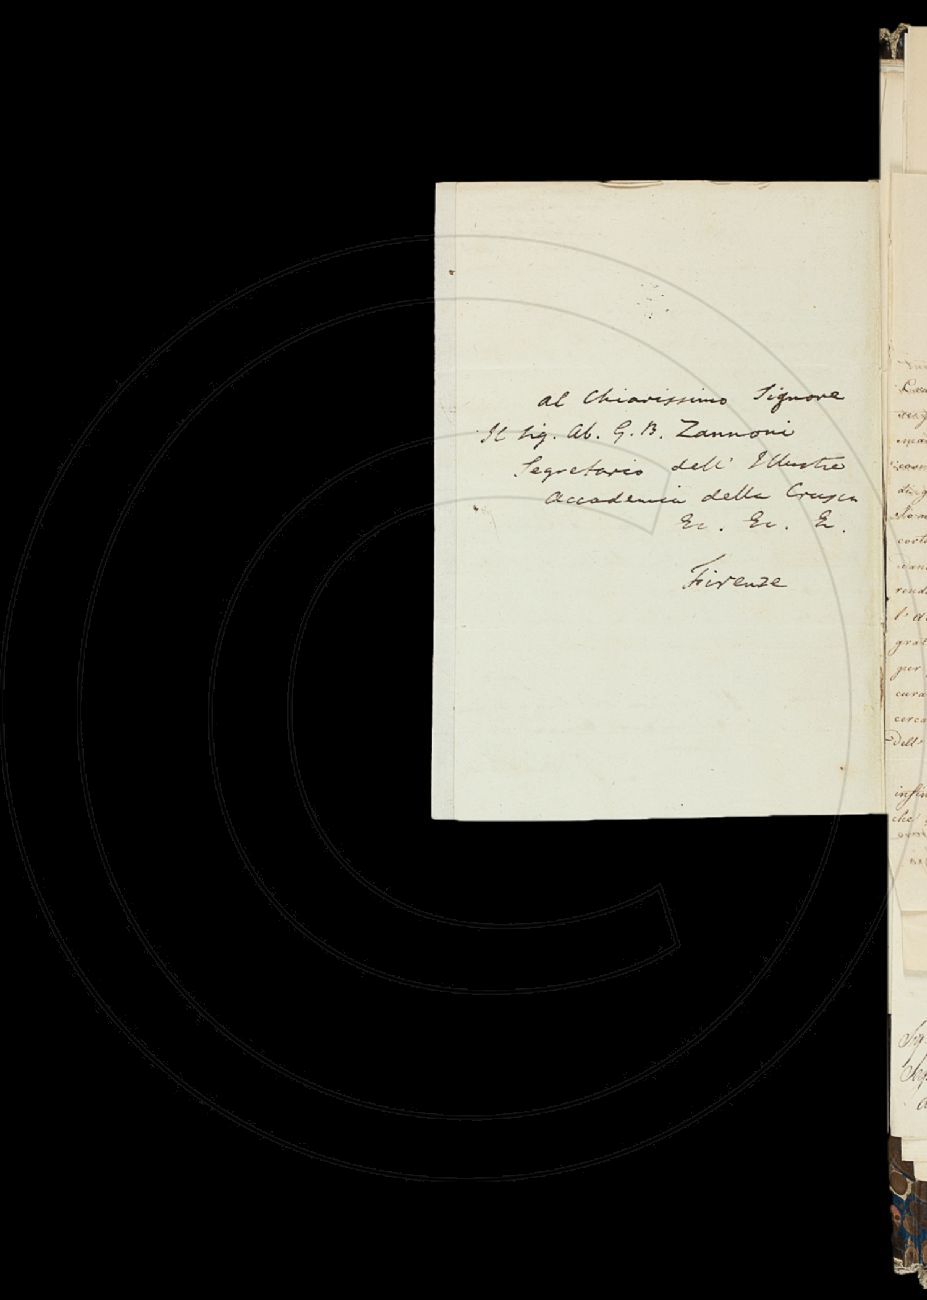 al Chiarissimo Signore
Il Sig. Ab. G. B. Zannoni
Segretario dell' Illustre
Accademia della Crusca
Ec. Ec. E.
Firenze